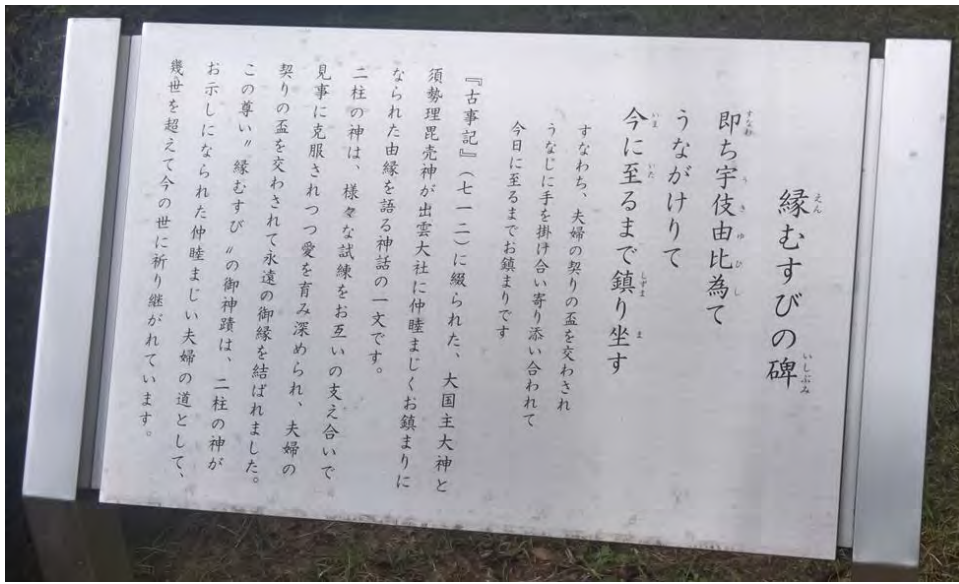 縁むすびの碑
即ち宇伎由比為て
うながけりて
今に至るまで鎮り坐す
すなわち、夫婦の契りの盃を交わされ
うなじに手を掛け合い寄り添い合われて
今日に至るまでお鎮まりです
『古事記』（七一二）に綴られた、大国主大神と
須勢理毘売神が出雲大社に仲睦まじくお鎮まりに
なられた由縁を語る神話の一文です。
二柱の神は、様々な試練をお互いの支え合いで
見事に克服されつつ愛を育み深められ、夫婦の
契りの盃を交わされて永遠の御縁を結ばれました。
この尊い〝縁むすび〟の御神蹟は、二柱の神が
お示しになられた仲睦まじい夫婦の道として、
幾世を超えて今の世に祈り継がれています。